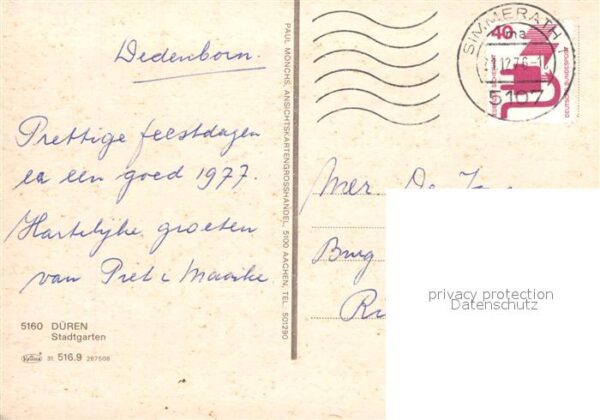 Dedenborn.
Prettige feestdagen
en een goed 1977.
Hartelijke groeten
van Piet & Maaike.
5160 DÜREN
Stadtgarten
31. 516.9 287508
PAUL MÖNCHS, ANSICHTSKARTENGROSSHANDEL, 5100 AACHEN, TEL. 501290
SIMMERATH 1
12.76
5107
40
DEUTSCHE BUNDESPOST
Mer. De
Burg
privacy protection
Datenschutz